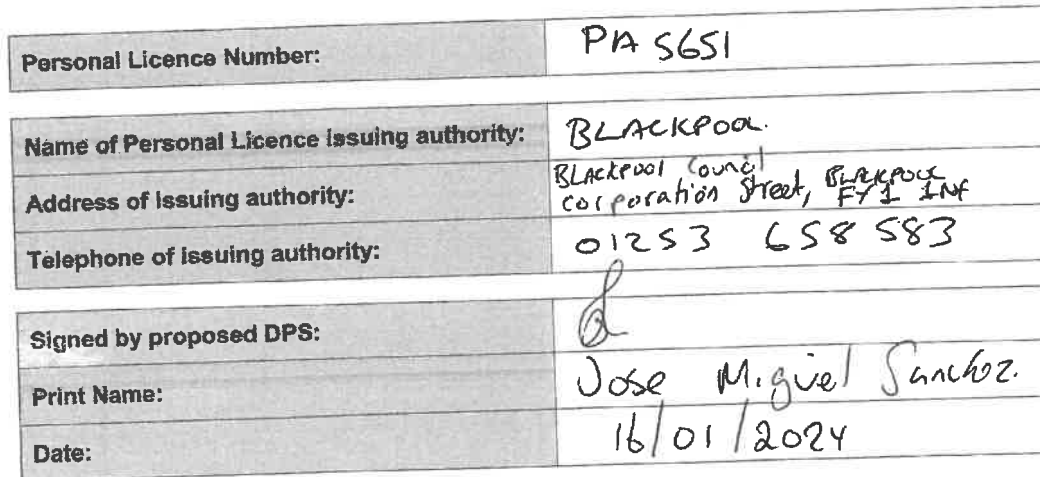 Personal Licence Number: PA 5651
Name of Personal Licence issuing authority: BLACKPOOL.
Address of issuing authority: BLACKPOOL Council
Corporation Street, BLACKPOOL FY1 1NF
Telephone of issuing authority: 01253 658 583
Signed by proposed DPS:
Print Name: Jose Miguel Sanchez.
Date: 16/01/2024